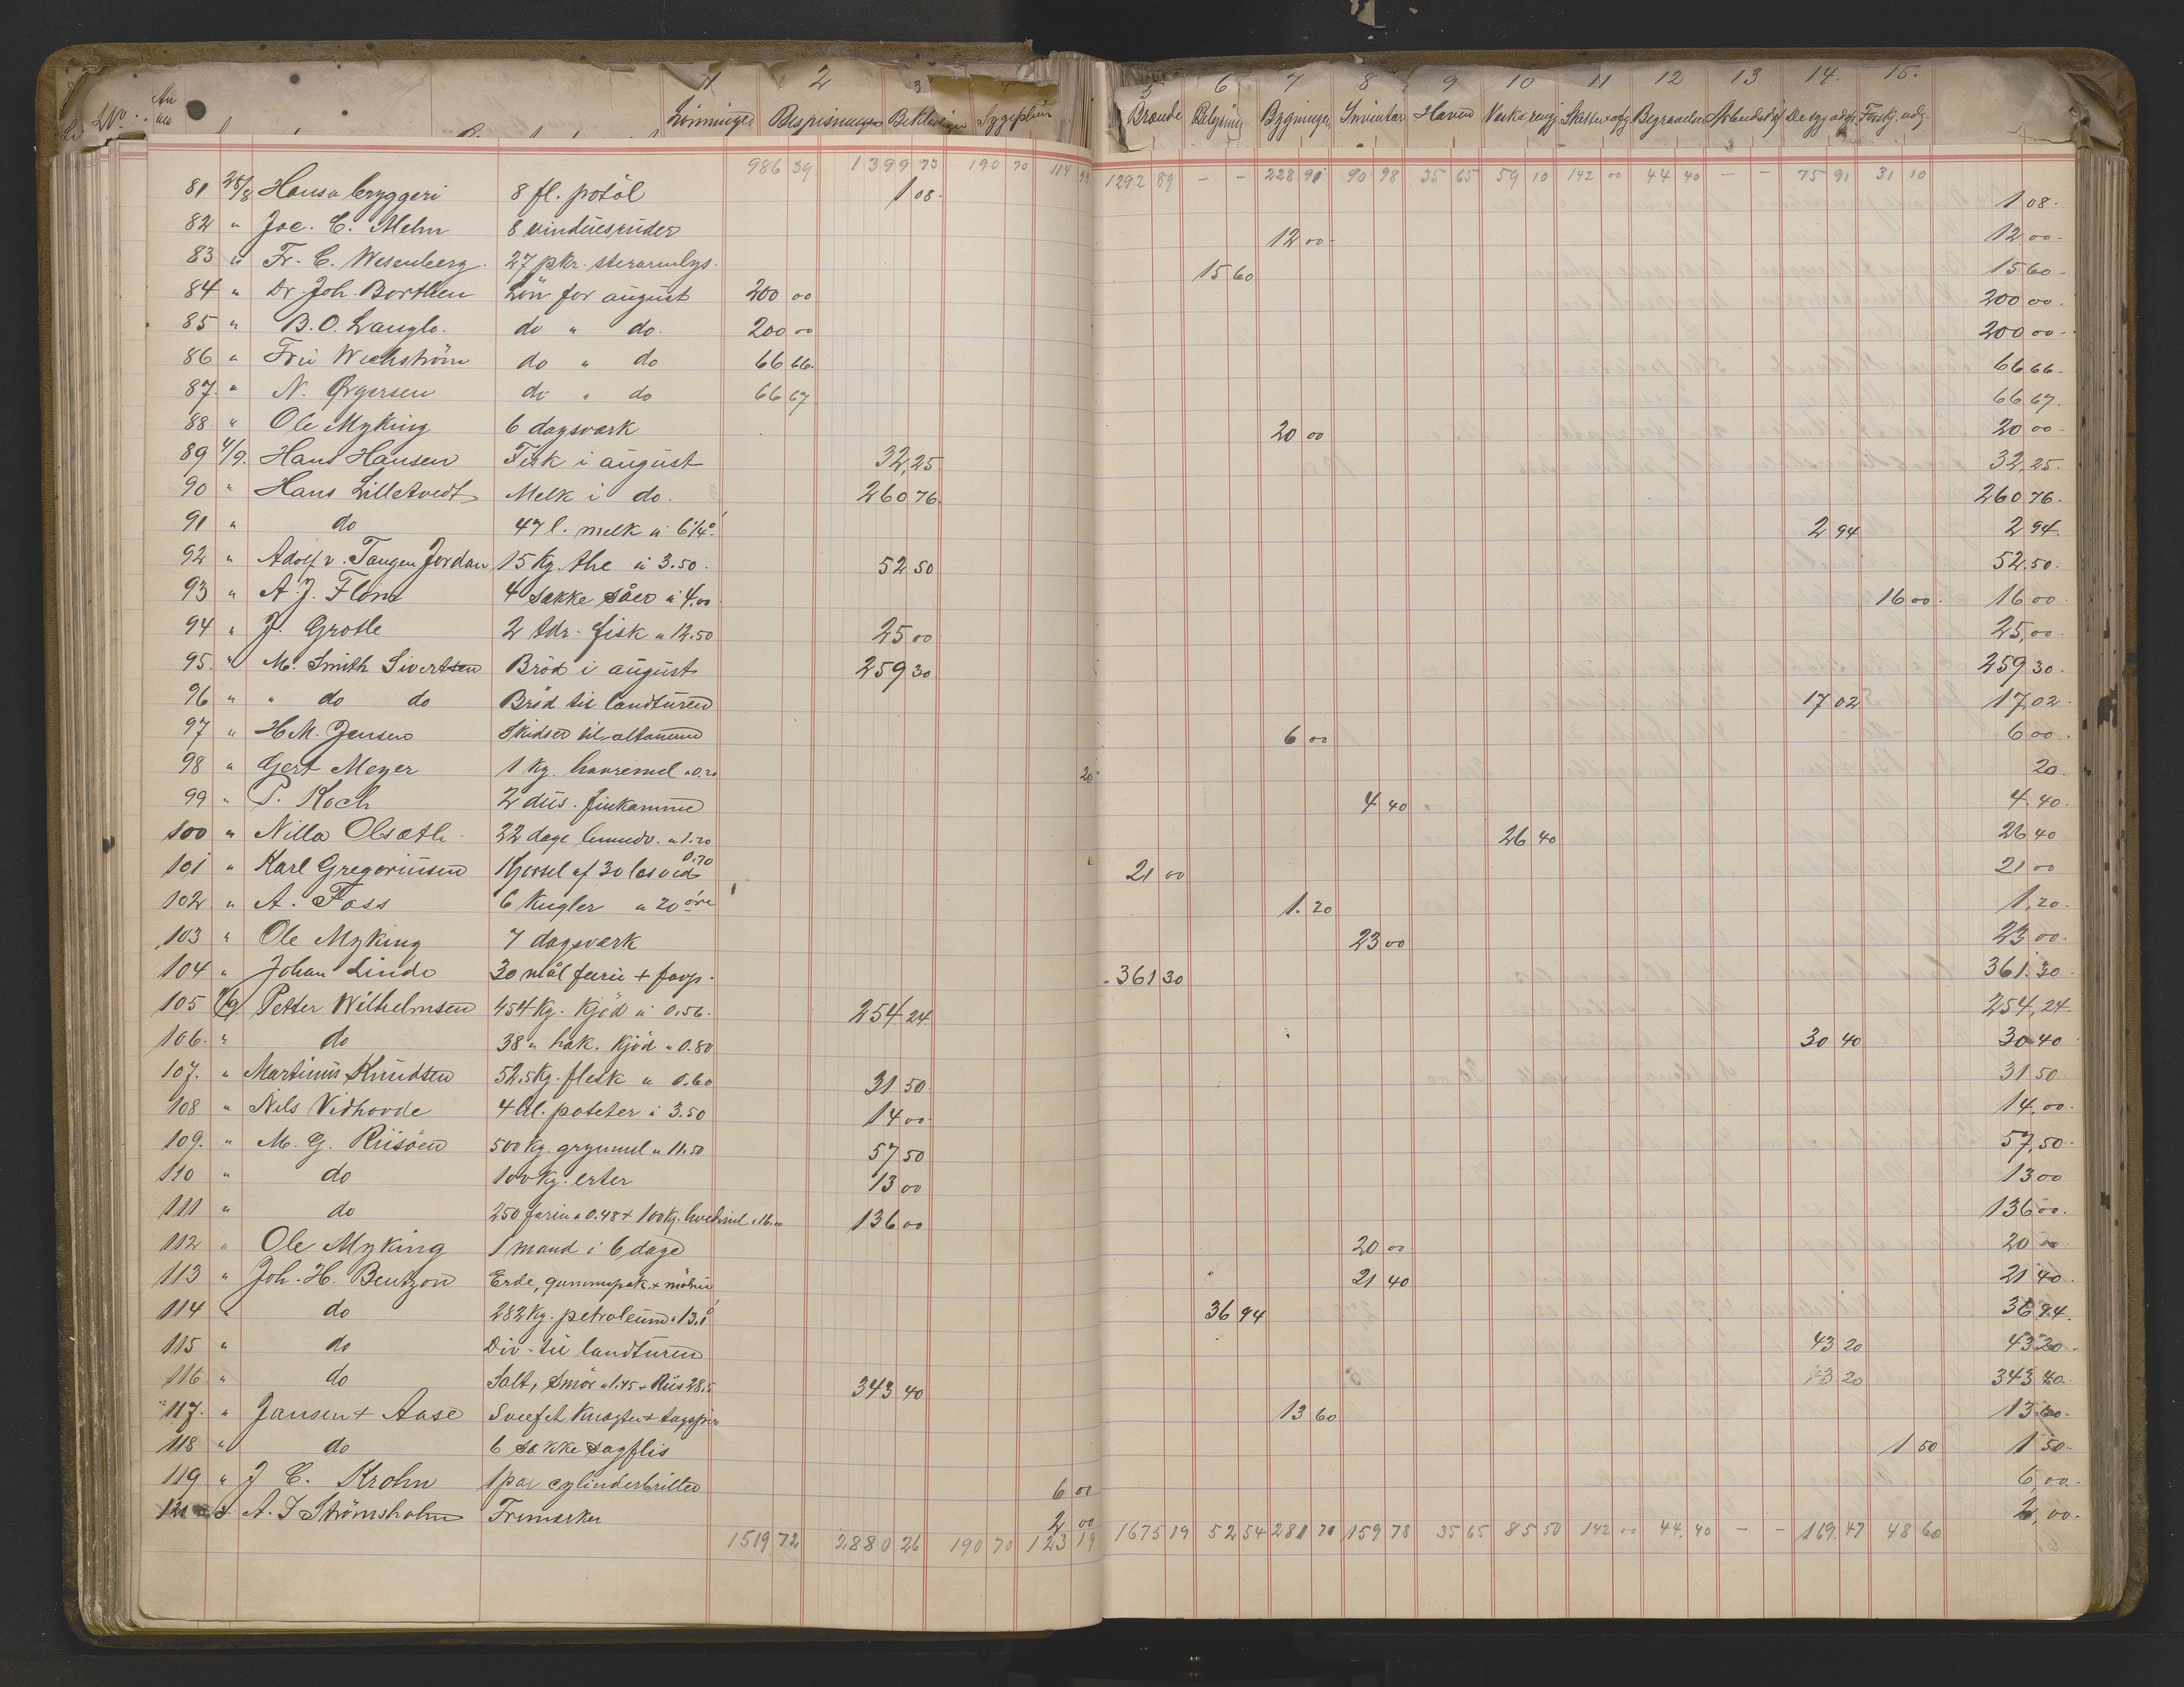 No. 1 2 3 5 6 7 8 9 10 11 12 13 14. 15.
Lønninger Bespisningen Beklædn Sygeplein Brænde Belysning Bygninger Inventar Haven Vask & rengj Skatter & afg Begravelse Forskj. udg.
986 39 1399 73 190 70 114 1292 89 - - 228 90 90 98 35 65 59 10 142 00 44 40 - - 75 91 31 10
81 28/8 Hansa bryggeri 8 fl. potöl 1 08 1 08
82 " Joc. C. Mehn 8 vinduesruder 12 00 12 00
83 " Fr. C. Wesenberg 27 pkr. stearinlys 15 60 15 60
84 " Dr. Joh. Borthen Lön for august 200 00 200 00
85 " B. O. Langlo. do " do. 200 00 200 00
86 " Frü Wichström do " do 66 66 66 66
87. " N. Ørgersen do " do 66 67 66 67
88 " Ole Myking 6 dagsværk 20 00 20 00
89 4/9. Hans Hansen Fisk i august 32,25 32,25
90 " Hans Lilletvedt Melk i do. 260 76 260 76
91 " do 47 l. melk a 6 1/4 2 94 2 94
92 " Adolf v. Tangen Jordan 15 Kg. the à 3.50 52 50 52.50
93 " A. J. Flöm 4 sække såer à 4,00 16 00 16 00
94 " J. Grotle 2 tdr. fisk a 12.50 25 00 25,00
95. " M. Smith Sivertsen Bröd i august 259 30 259 30
96 " " do do Bröd til landturen 17 02 17 02
97 " H M. Jensen Skidser til altanene 6 00 6 00
98 " Gert Meyer 1 Kg. havremel a 0.20 20 20
99 " P. Koch 2 dus. finkamme 4 40 4 40
100 " Nilla Olsæth 22 dage a 1.20 26 40 26 40
101 " Karl Gregoriussen Kjørsel af 30 læs ved 0.70 21 00 21 00
102 " A. Foss 6 Kugler a 20 öre 1.20 1,20
103 " Ole Myking 7 dagsværk 23 00 23 00
104 " Johan Lindo 30 mål furu + 361 30 361.30
105 Petter Wilhelmsen 454 Kg. Kjöd à 0.56 254 24 254,24
106. " do 38 " hak. Kjöd " 0.80 30 40 30 40
107. " Martinus Knudsen 52.5 Kg. flesk a 0.60 31 50 31 50
108 " Nils Vidhovde 4 hl. poteter à 3.50 14 00 14,00
109. " M. G. Riisöen 500 Kg. grynmel a 11.50 57 50 57,50
110 " do 100 Kg. erter 13 00 13 00
111 " do 250 farin a 0.48 + 100 Kg. hvedmel a 16.00 136 00 136 00
112 " Ole Myking 1 mand i 6 dage 20 00 20 00
113 " Joh. H. Bentzon Erde, gummipak. + mönie 21 40 21 40
114 " do 282 Kg. petroleum a 13.1 36 94 36 94
115 " do Div. til landturen 43 20 43 20
116 " do Salt, Smör a 1.45 + Riis 28.5 343 40 13 20 343 40
117. " Jansen + Aase 13 60 13 60
118 " do 6 sække sagflis 1 50 1 50
119 " J C. Krohn 1 par cylinderbriller 6 00 6,00
A. J Strömsholm Frimærker 2 00 2,00
1519 72 2880 26 190 70 123 19 1675 19 52 54 281 70 159 78 35 65 85 50 142 00 44,40 - - 169.47 48 60